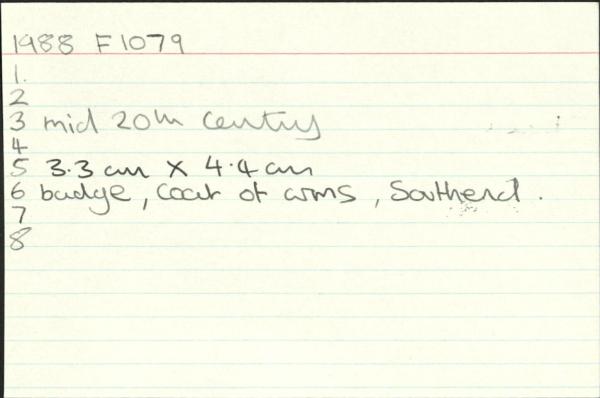 1988 F1079
1.
2
3 mid 20th Century
4
5 3.3 cm X 4.4 cm
6 badge, Coat of arms, Southend.
7
8